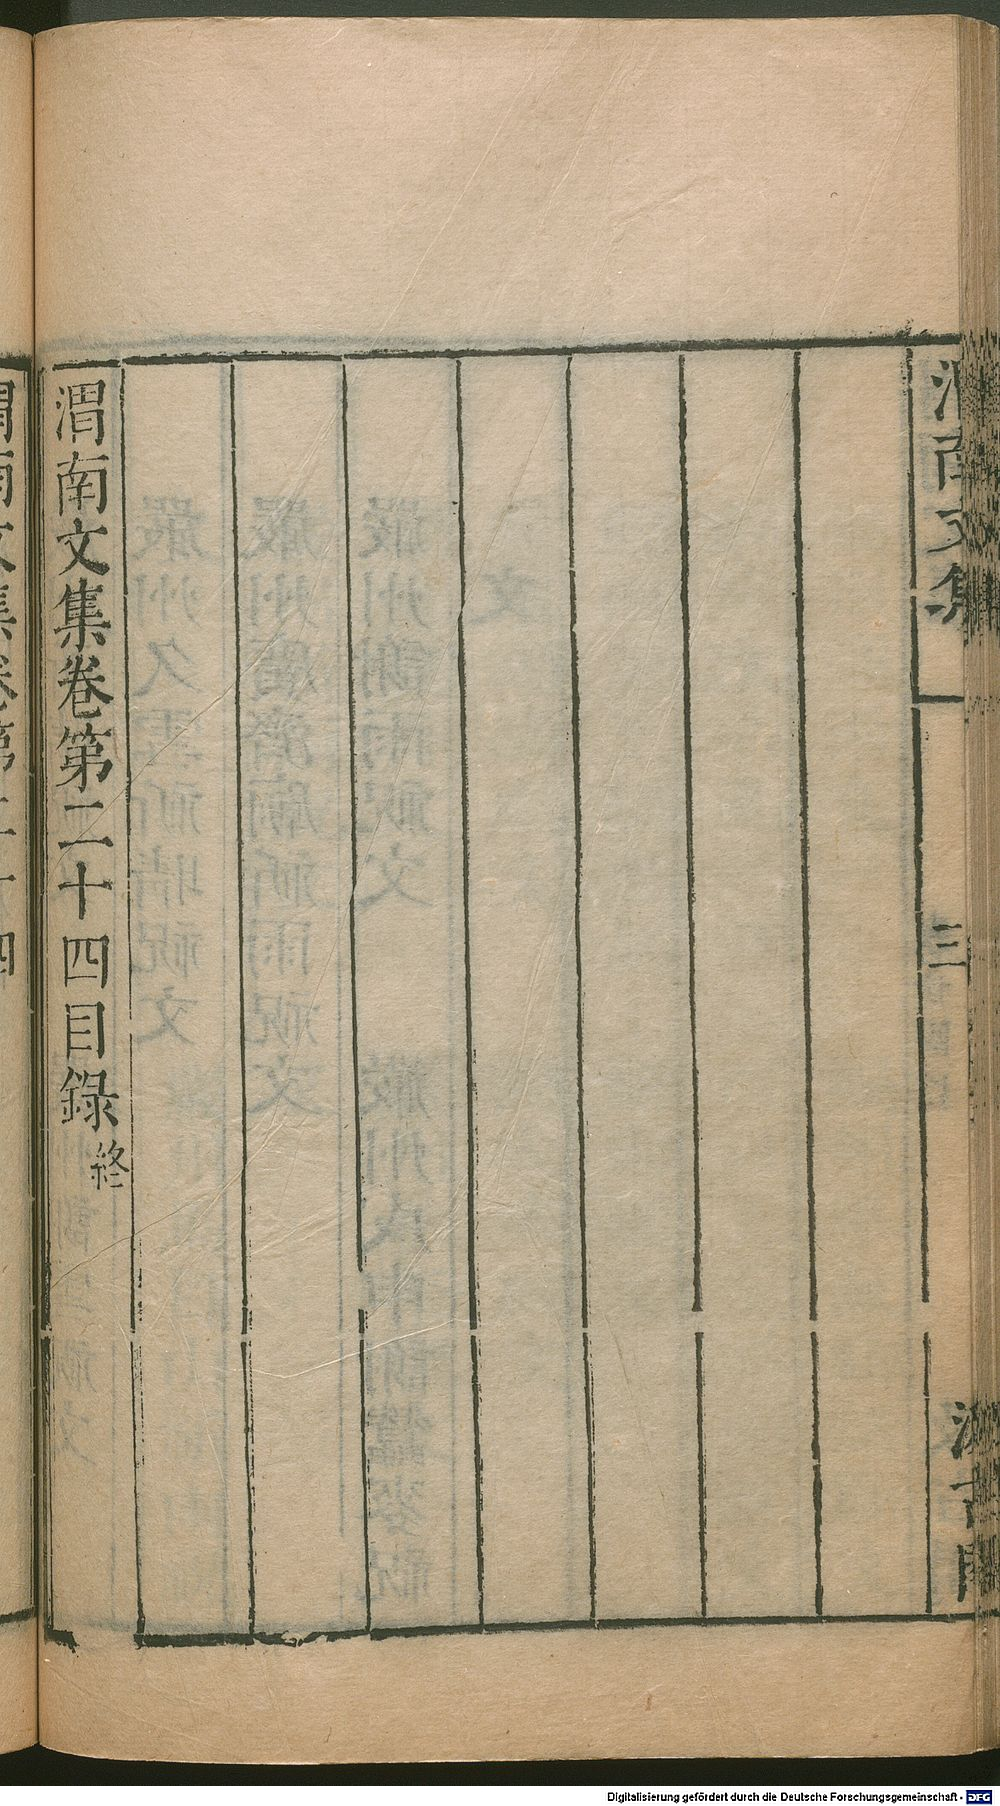 渭南文集
三
汲古閣
渭南文集卷第二十四目錄終
渭南文集卷第二十四
Digitalisierung gefördert durch die Deutsche Forschungsgemeinschaft - DFG